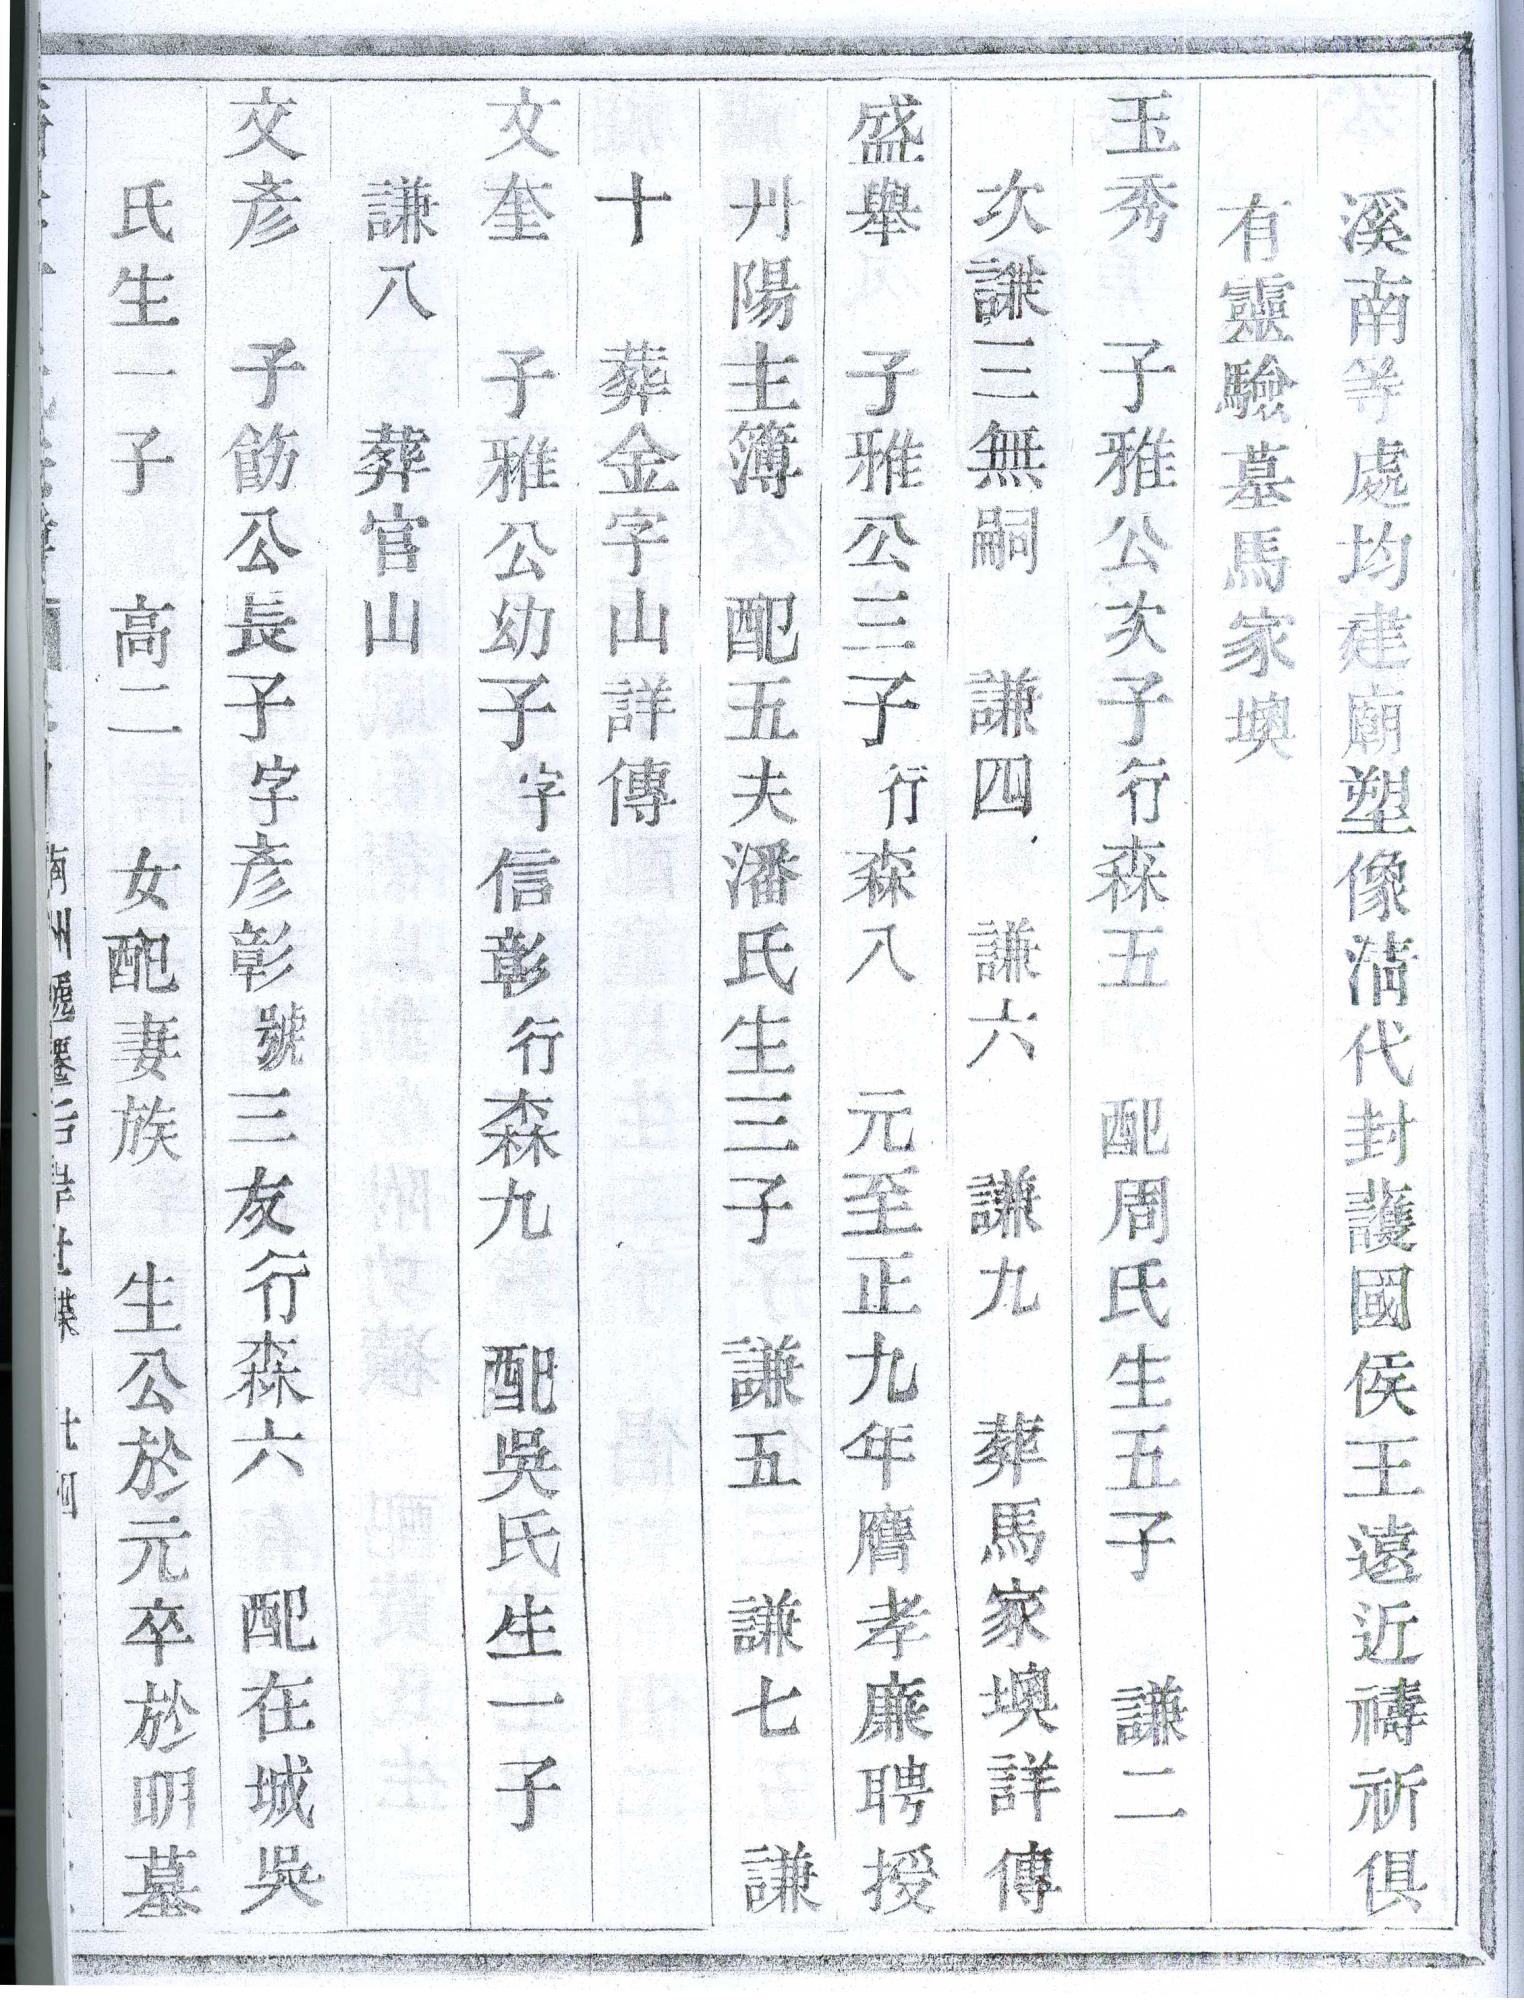 溪南等處均建廟塑像淸代封護國侯王遠近禱祈俱
有靈驗墓馬家墺
玉秀 子雅公次子行森五 配周氏生五子 謙二
次謙三無嗣 謙四 謙六 謙九 葬馬家墺詳傳
盛舉 子雅公三子行森八 元至正九年膺孝廉聘授
丹陽主簿 配五夫潘氏生三子 謙五 謙七 謙
十 葬金字山詳傳
文奎 子雅公幼子字信彰行森九 配吳氏生一子
謙八 葬官山
文彥 子飭公長子字彥彰號三友行森六 配在城吳
氏生一子 高二 女配妻族 生公於元卒於明墓